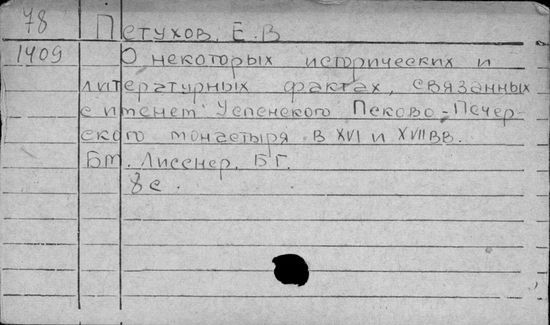 78 Петухов. Е. В
1409 О некоторых исторических и
литературных фактах, связанных
с именем Успенского Псково-Печер-
ского монастыря в XVI и XVII вв.
Бм. Лисснер. БГ.
8 с.